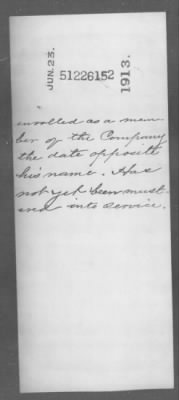 JUN. 23.
51226152
1913.
inrolled as a mem-
ber of the Company
the date opposite
his name. Has
not yet been must-
ered into service.